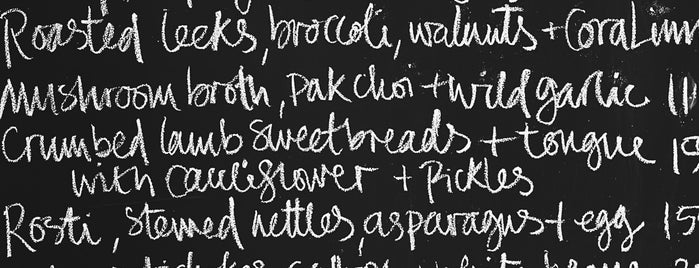 Roasted leeks, broccoli, walnuts + Coral
Mushroom broth, pak choi + wild garlic 11
Crumbed lamb sweetbreads + tongue
with cauliflower + pickles
Rosti, stemed nettles, asparagus + egg 15